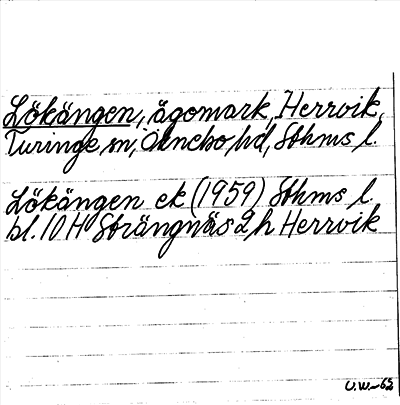 Lökängen, ägomark, Herrvik,
Turinge sn, Öknebo hd, Sthms l.
Lökängen ek (1959) Sthms l.
bl. 10 H Strängnäs 2 h Herrvik
U.W-62